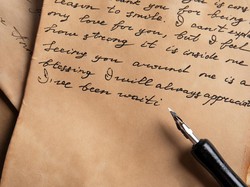 thank you for
reason to smile. I can't expl
my love for you, but I feel
how strong it is inside me
Seeing you around me is a
blessing I will always appreciate
I've been waiti